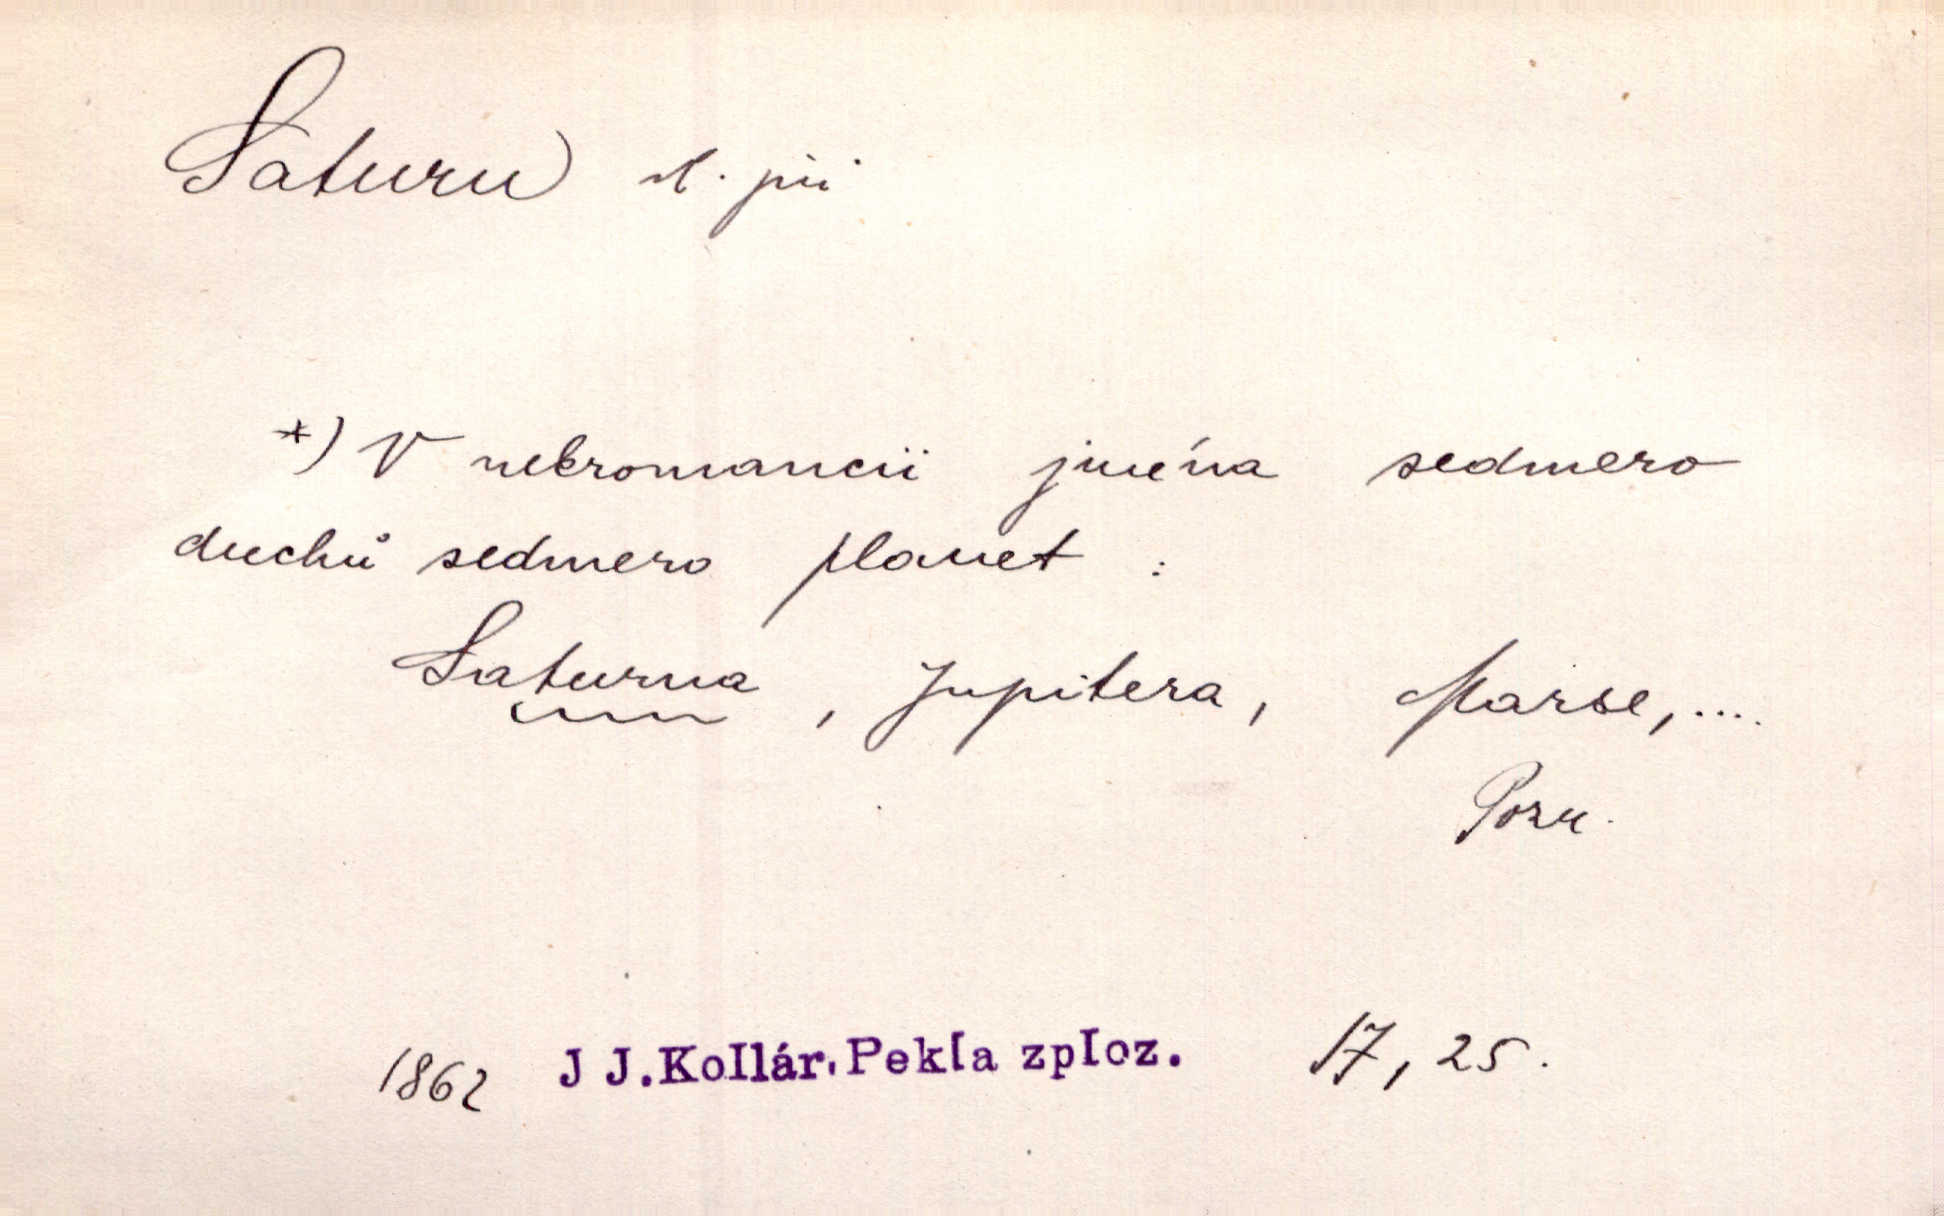 Saturn vl. jm.
*) V nekromancii jména sedmero
duchů sedmero planet :
Saturna, Jupitera, Marse,....
Pozn.
1862 J J.Kollár.Pekla zploz. 17, 25.